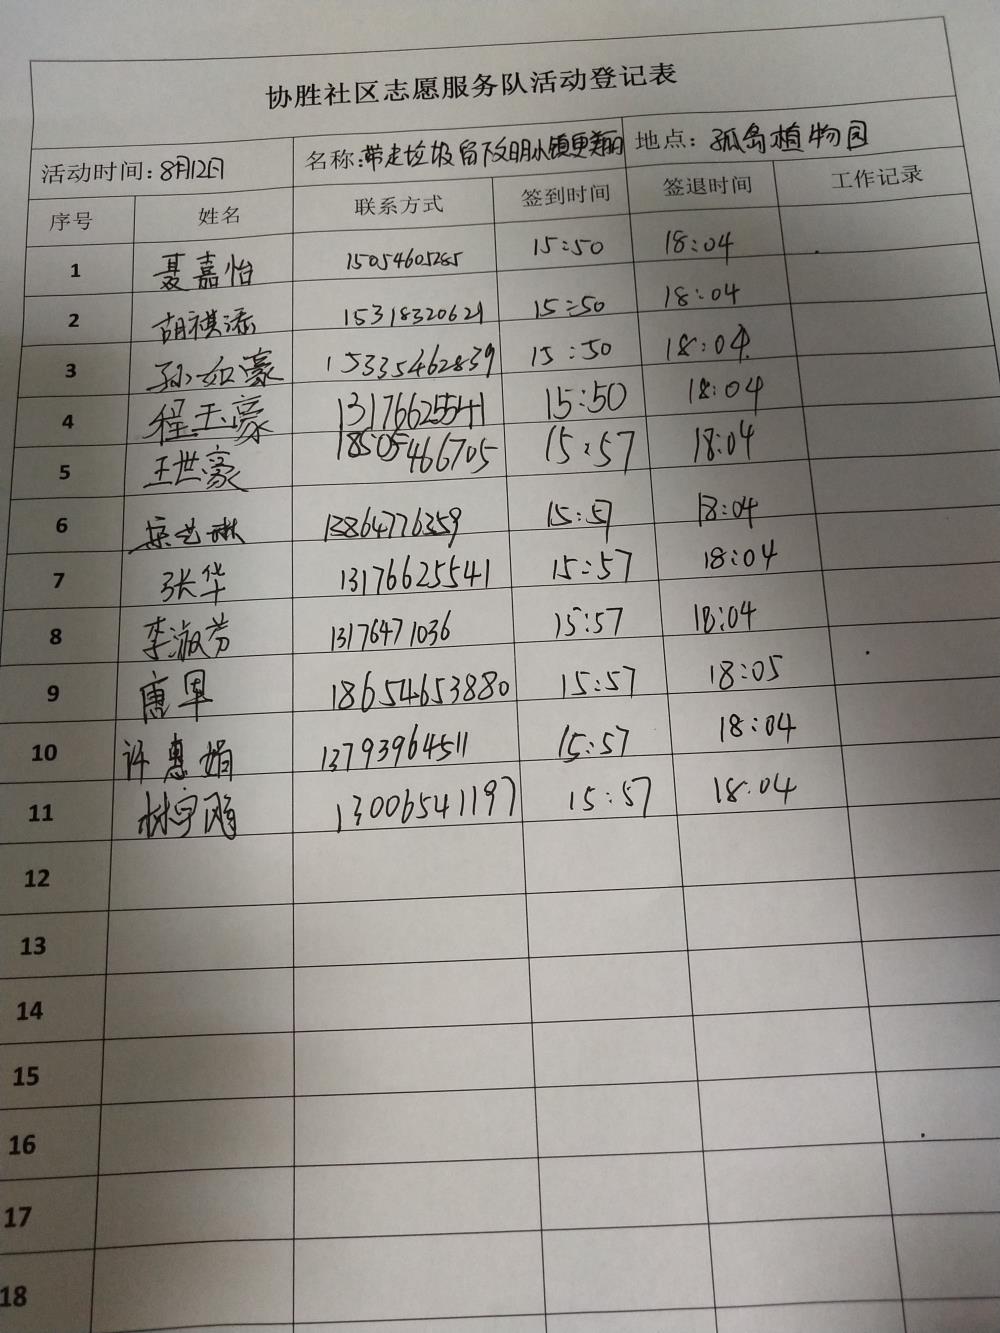 协胜社区志愿服务队活动登记表
活动时间:8月12日 名称:带走垃圾留下文明小镇更靓丽 地点:孤岛植物园
序号 姓名 联系方式 签到时间 签退时间 工作记录
1 聂嘉怡 15054605285 15:50 18:04
2 胡祺添 15318320621 15:50 18:04
3 孙如豪 15335462839 15:50 18:04
4 程玉豪 13176625541 15:50 18:04
5 王世豪 18505466705 15:57 18:04
6 艺琳 13864776359 15:57 18:04
7 张华 13176625541 15:57 18:04
8 李淑芳 13176471036 15:57 18:04
9 唐军 18654653880 15:57 18:05
10 许惠娟 13793964511 15:57 18:04
11 林宇鹏 13006541197 15:57 18:04
12
13
14
15
16
17
18